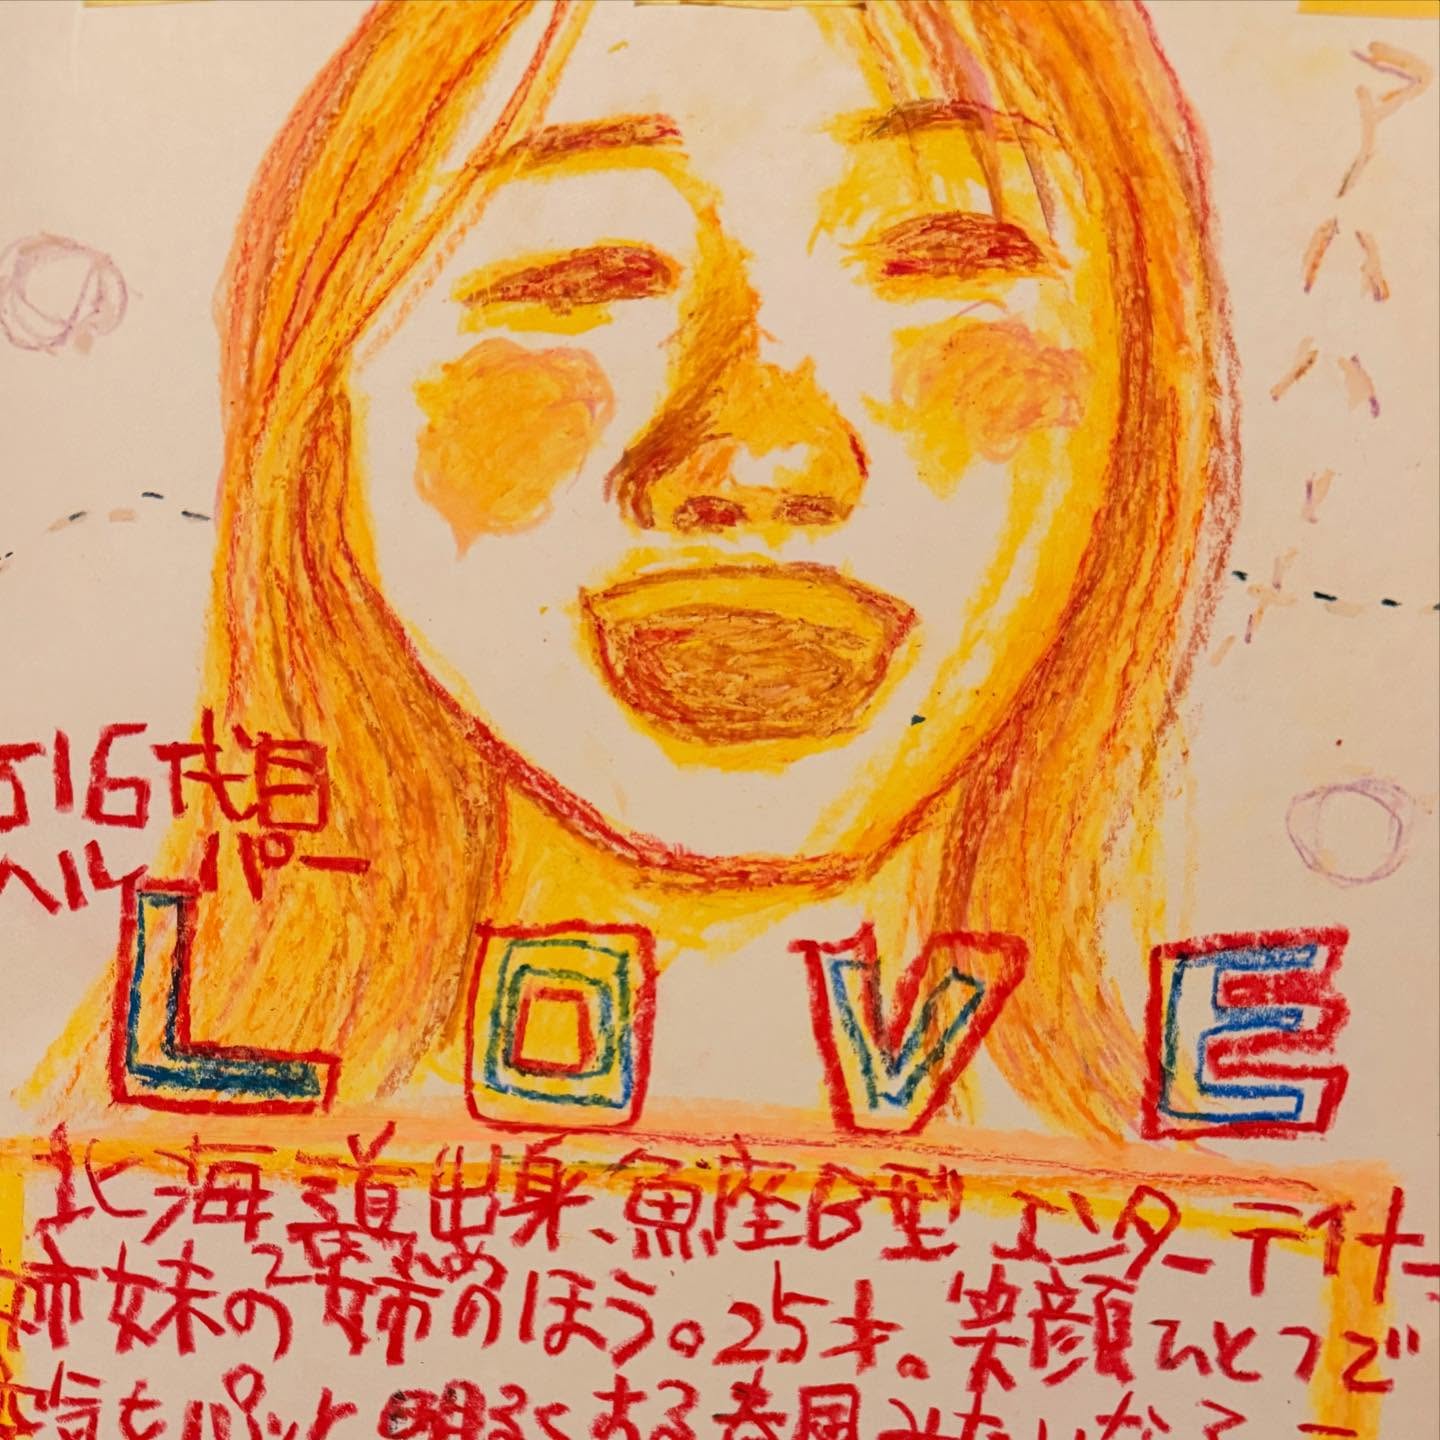 アハハ
J16代目
ヘルパー
LOVE
北海道出身、魚座B型 エンターテイナー
姉妹の姉のほう。25才。笑顔ひとつで
空気をパッと明るくする春風みたいな